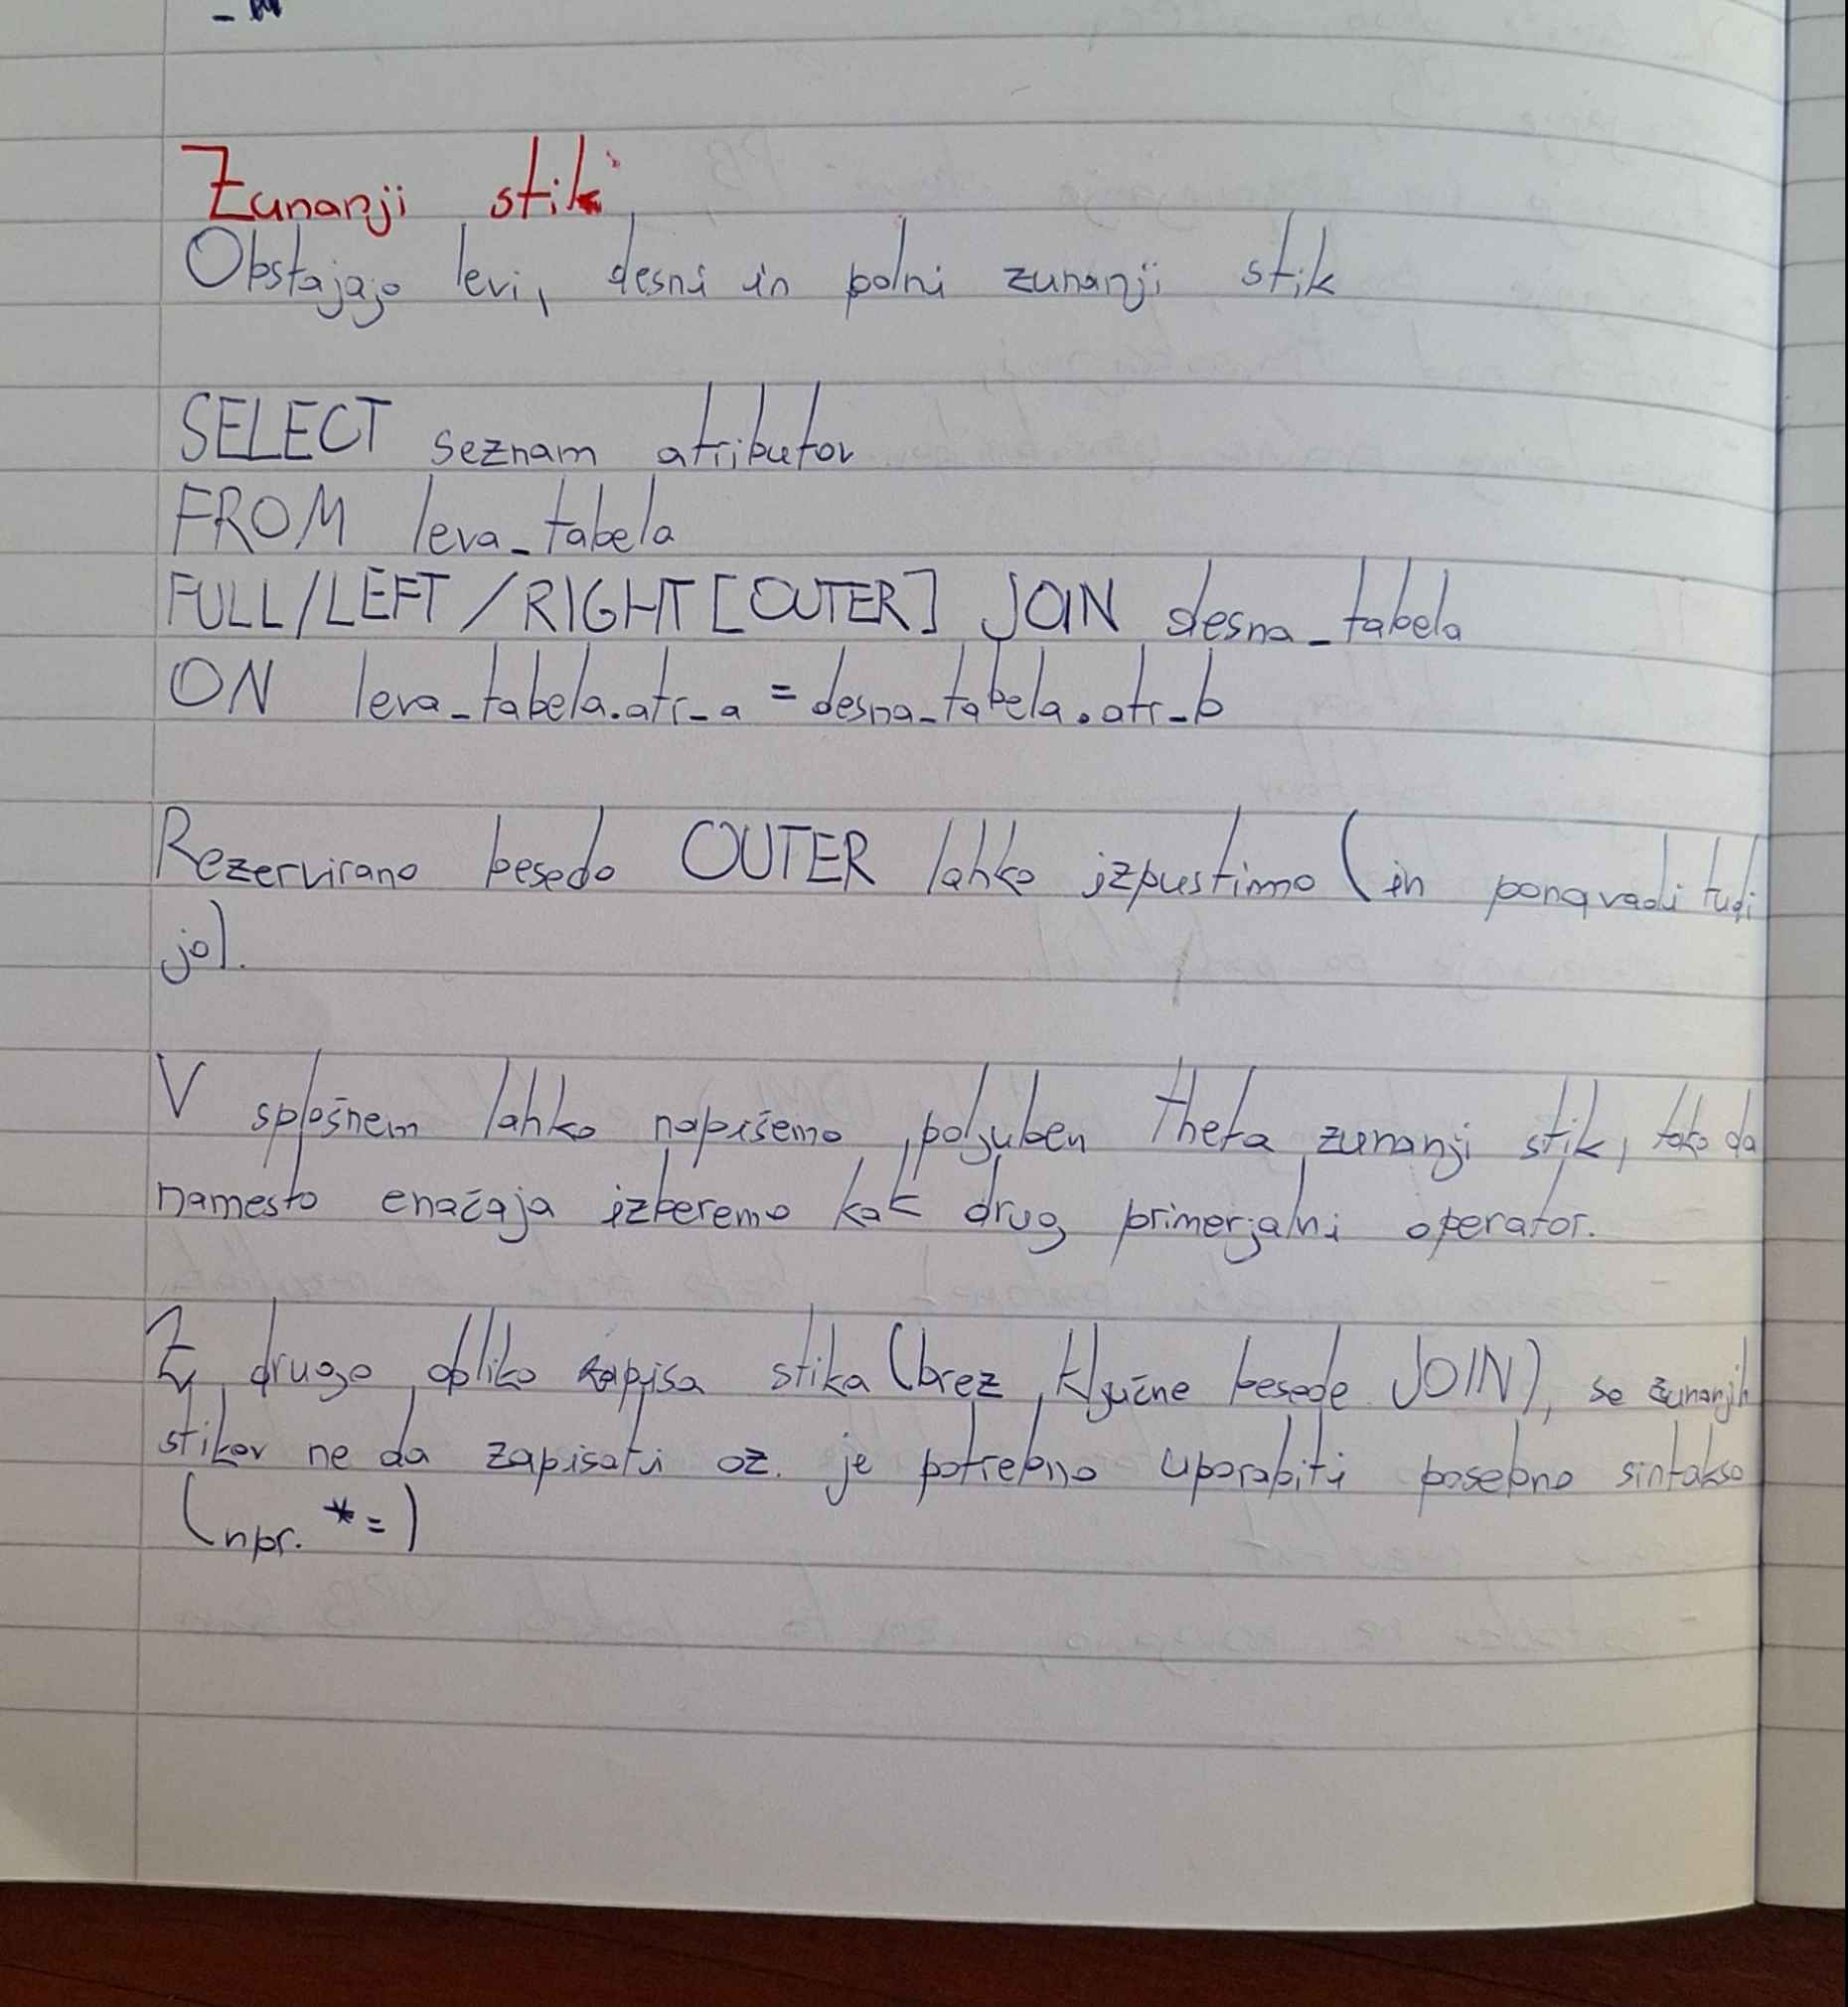 Zunanji stik
Obstajajo levi, desni in polni zunanji stik
SELECT seznam atributov
FROM leva_tabela
FULL/LEFT/RIGHT[OUTER] JOIN desna_tabela
ON leva_tabela.atr_a = desna_tabela.atr_b
Rezervirano besedo OUTER lahko izpustimo (in ponavadi tudi
jo).
V splošnem lahko napišemo poljuben theta zunanji stik, tako da
namesto enačaja izberemo kak drug primerjalni operator.
Z drugo obliko zapisa stika (brez ključne besede JOIN), se zunanjih
stikov ne da zapisati oz. je potrebno uporabiti posebno sintakso
(npr. *=)